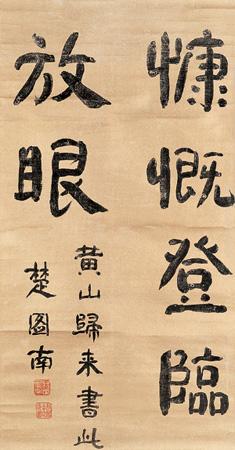 慷慨登臨
放眼
黃山歸来書此
楚圖南